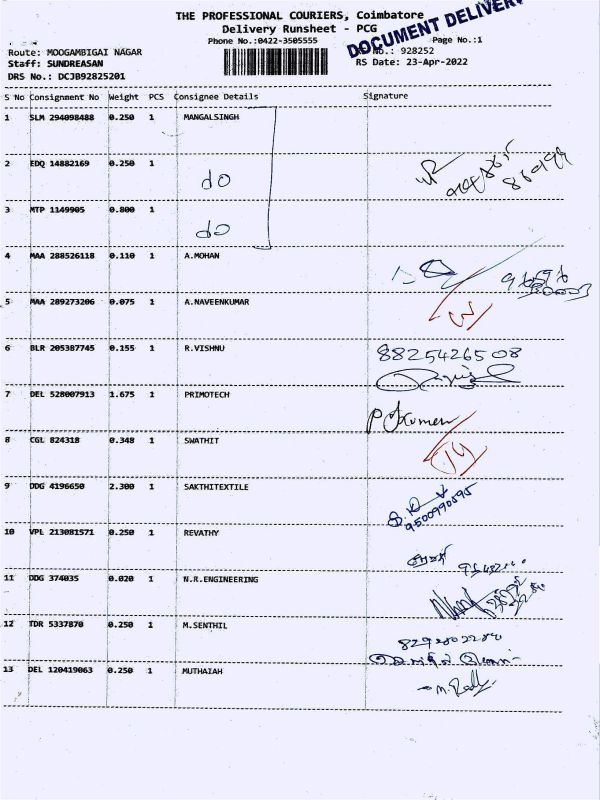 THE PROFESSIONAL COURIERS, Coimbatore
Delivery Runsheet - PCG
DOCUMENT DELIVERY
Phone No.:0422-3505555
Page No.:1
Route: MOOGAMBIGAI NAGAR
No.: 928252
Staff: SUNDREASAN
RS Date: 23-Apr-2022
DRS No.: DCJB92825201
S No Consignment No Weight PCS Consignee Details Signature
1 SLM 294098488 0.250 1 MANGALSINGH
2 EDQ 14882169 0.250 1 do
3 MTP 1149905 0.800 1 do
4 MAA 288526118 0.110 1 A.MOHAN
5 MAA 289273206 0.075 1 A.NAVEENKUMAR
6 BLR 205387745 0.155 1 R.VISHNU 8825426508
7 DEL 528007913 1.675 1 PRIMOTECH
8 CGL 824318 0.348 1 SWATHIT
9 DDG 4196650 2.300 1 SAKTHITEXTILE
9500990595
10 VPL 213081571 0.250 1 REVATHY
11 DDG 374035 0.020 1 N.R.ENGINEERING
12 TDR 5337870 0.250 1 M.SENTHIL
13 DEL 120419063 0.250 1 MUTHAIAH